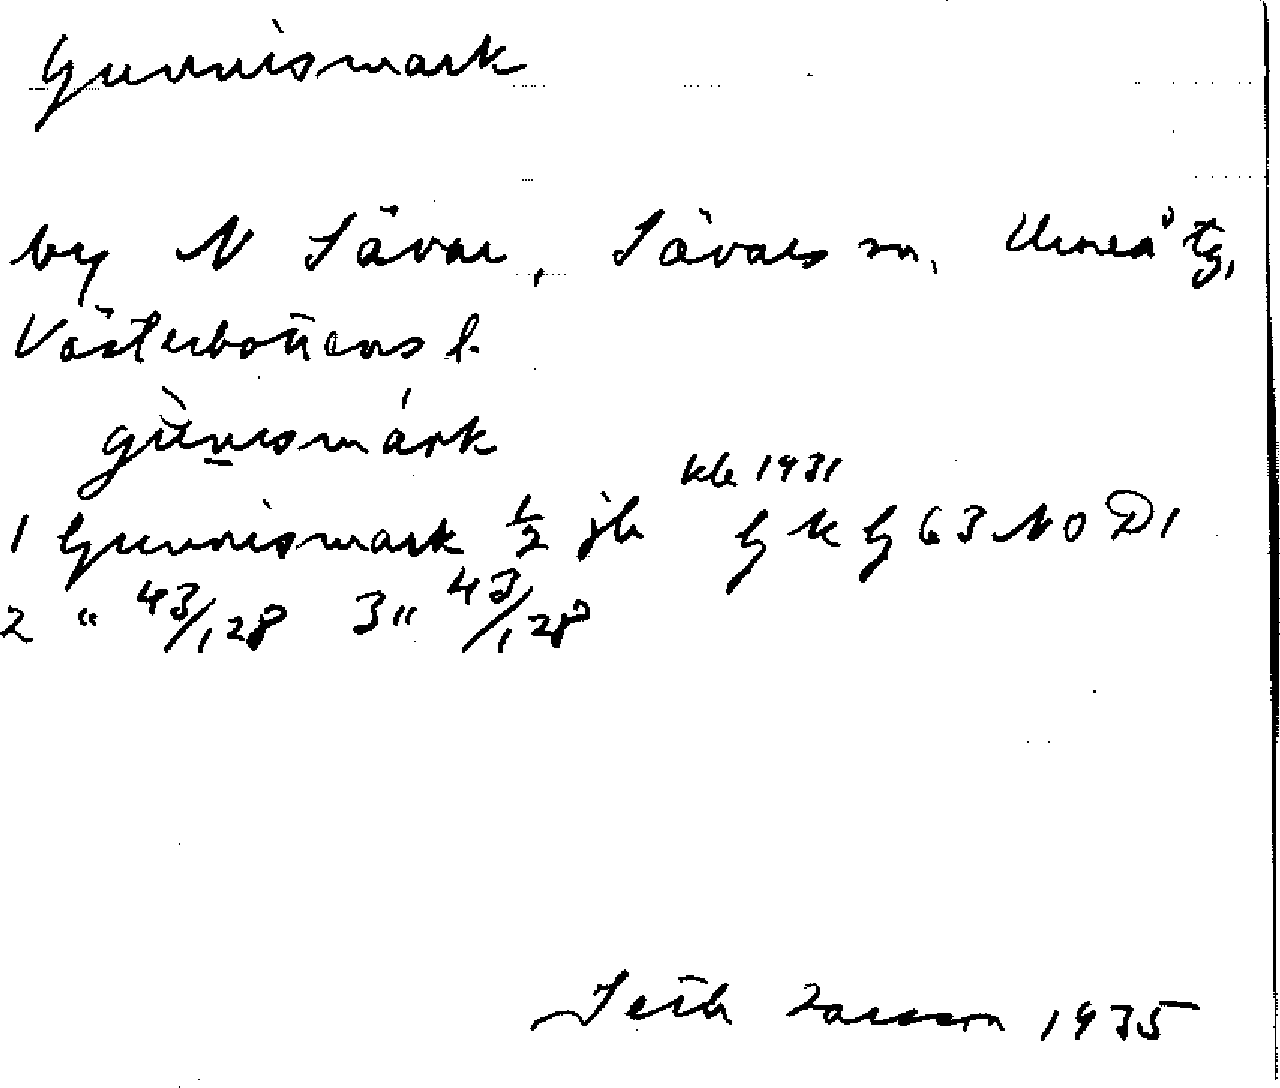 Gunnismark
by N Sävar, Sävars sn, Umeå tg,
Västerbottens l.
gùnismárk
kb 1931
1 Gunnismark 1/2 jb G K G 63 NO D1
2 " 43/128 3 " 43/128
Seth Larsson 1935